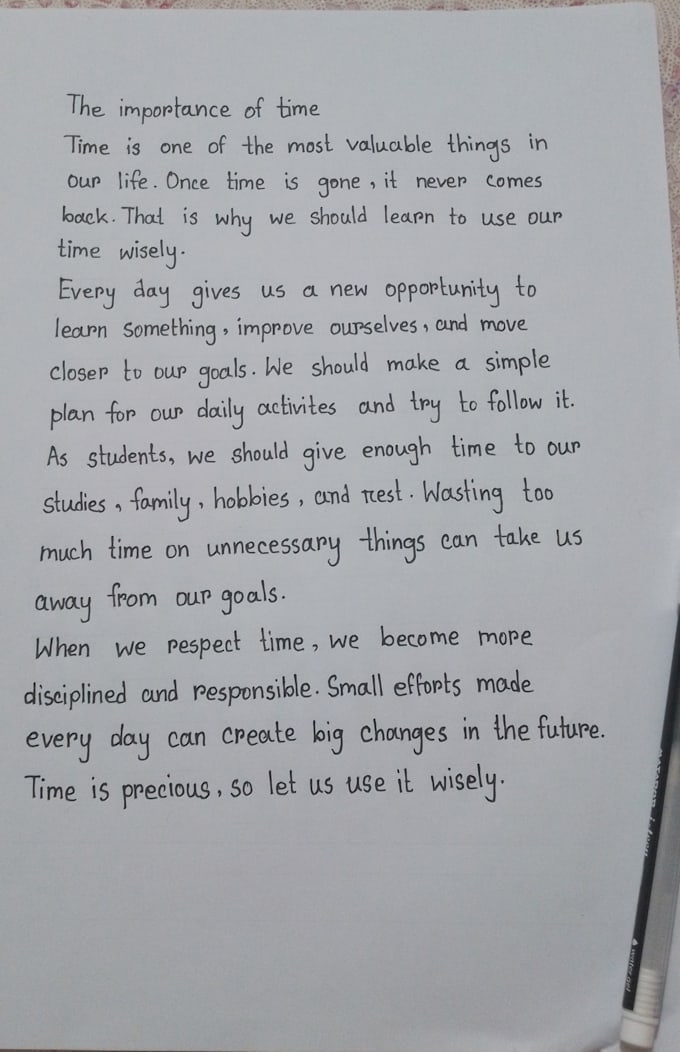 The importance of time
Time is one of the most valuable things in
our life. Once time is gone, it never comes
back. That is why we should learn to use our
time wisely.
Every day gives us a new opportunity to
learn something, improve ourselves, and move
closer to our goals. We should make a simple
plan for our daily activites and try to follow it.
As students, we should give enough time to our
studies, family, hobbies, and rest. Wasting too
much time on unnecessary things can take us
away from our goals.
When we respect time, we become more
disciplined and responsible. Small efforts made
every day can create big changes in the future.
Time is precious, so let us use it wisely.